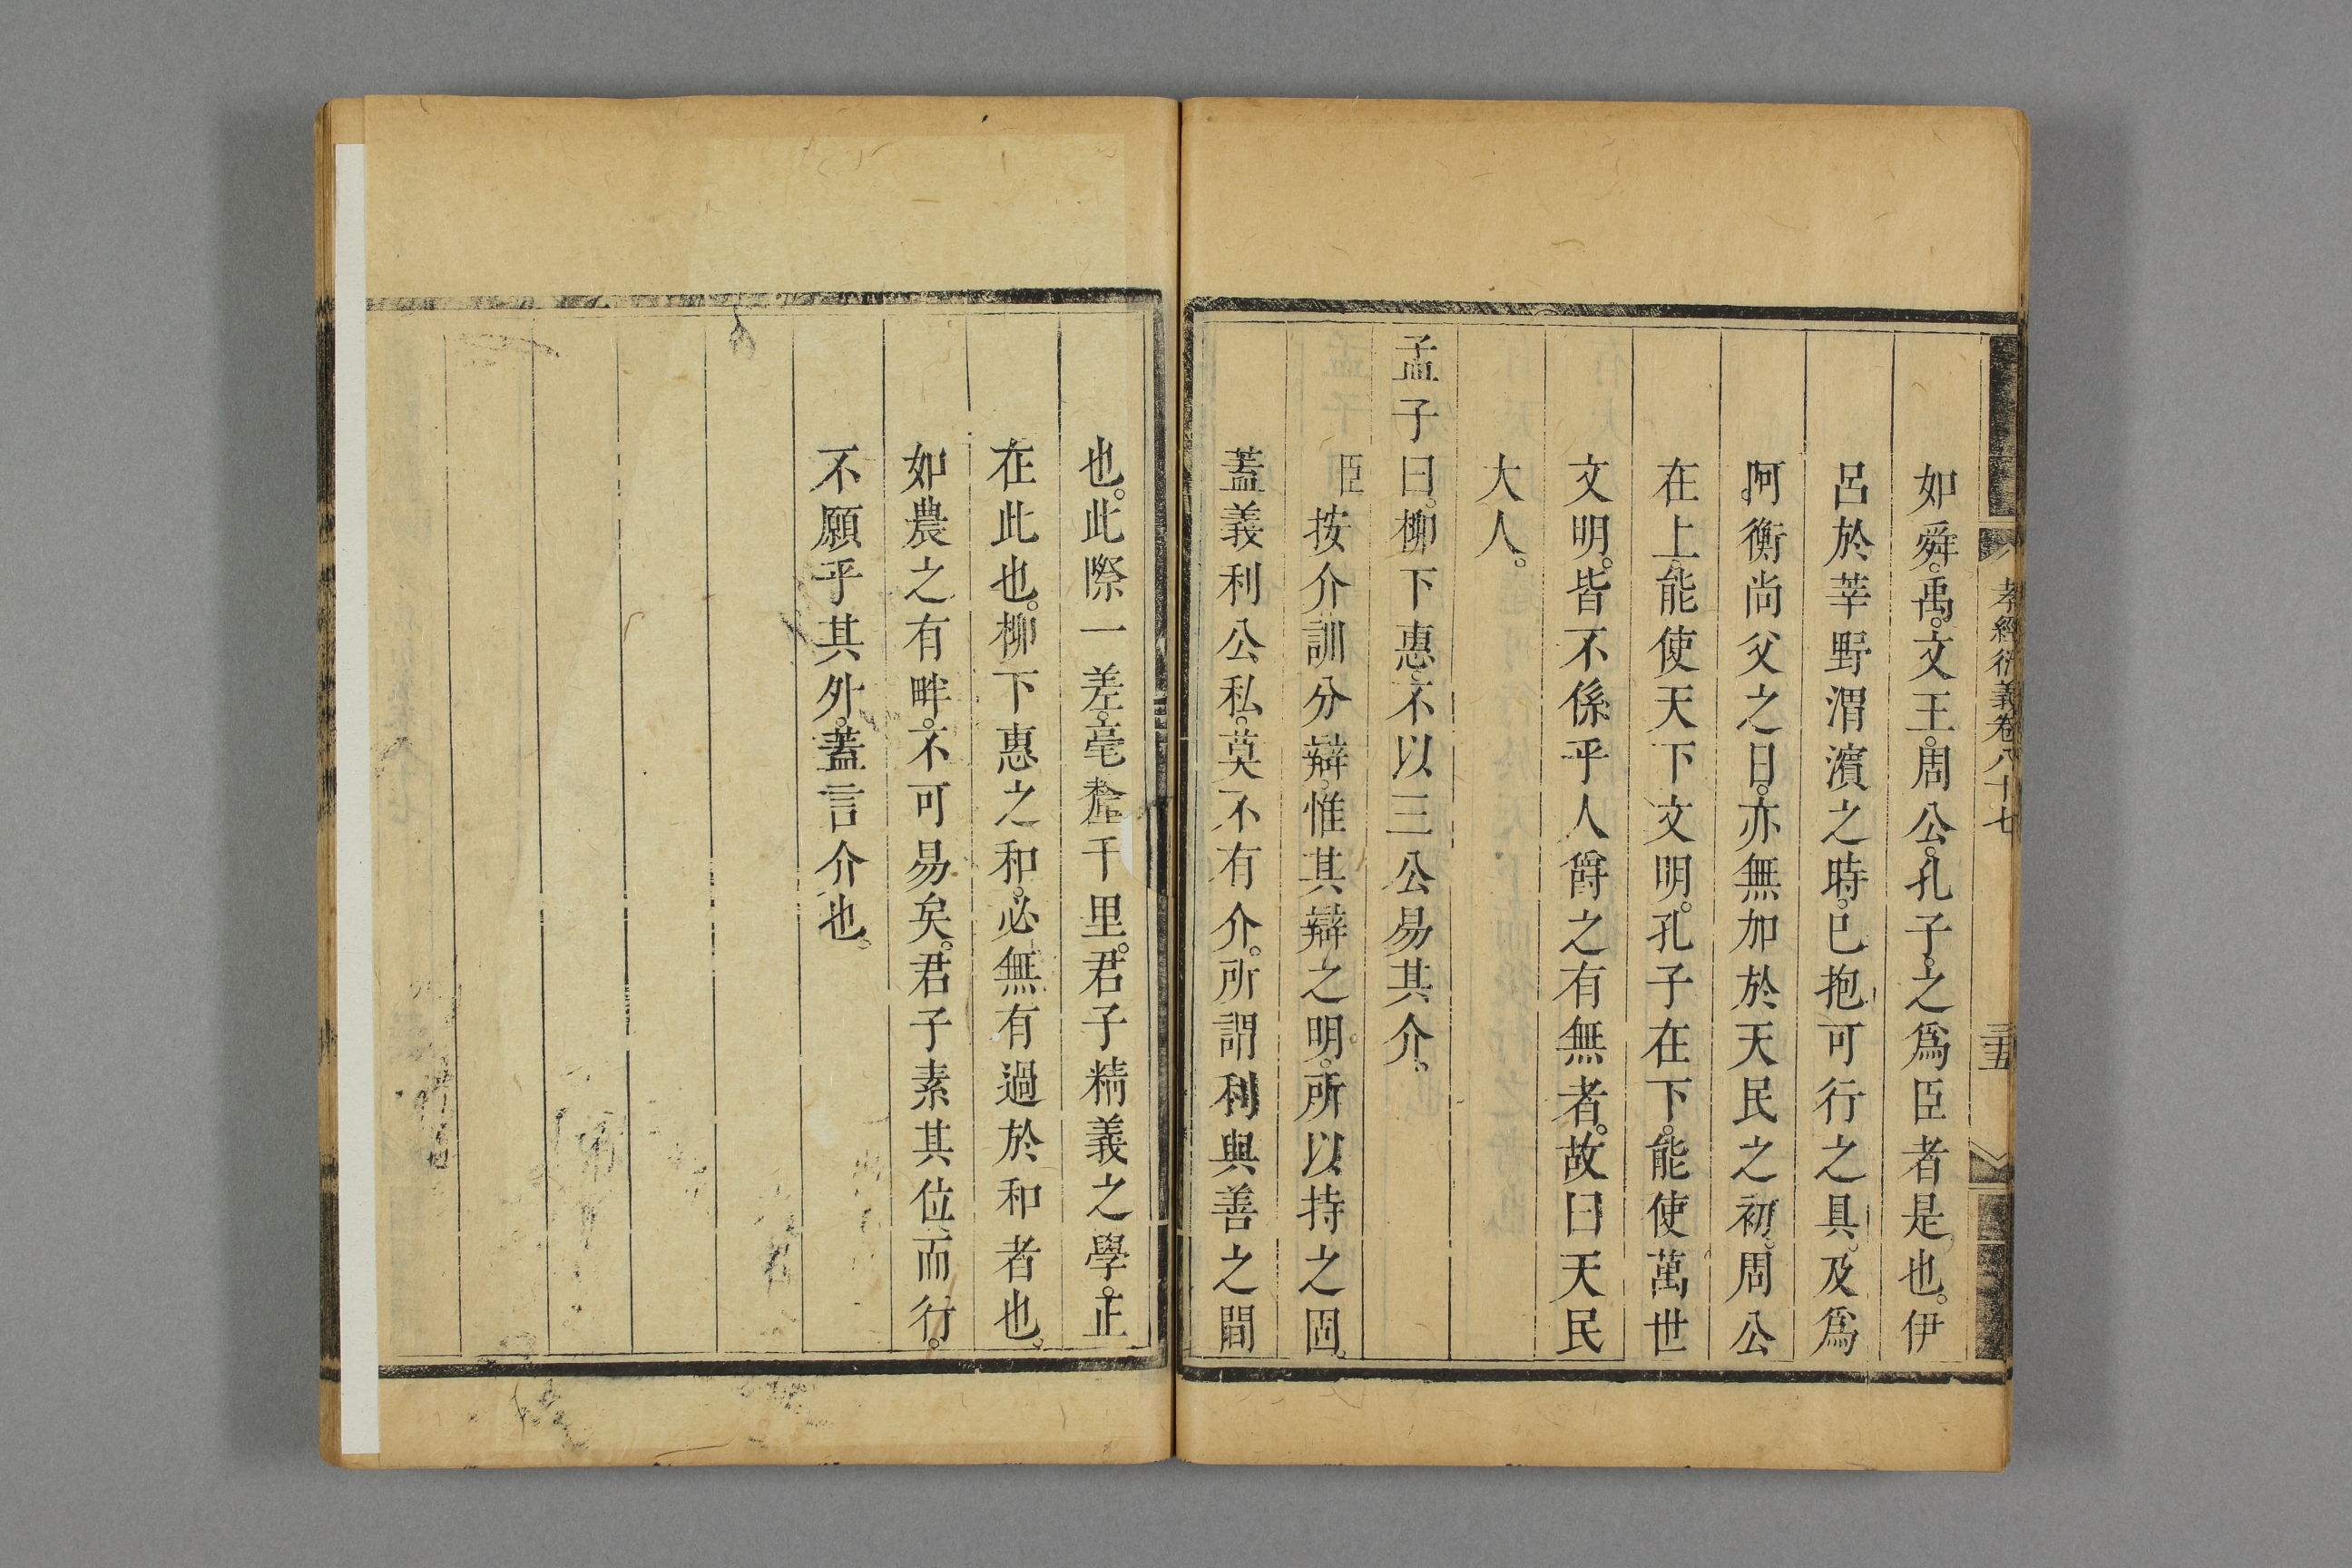 孝經衍義卷八十七
三五
如舜。禹。文王。周公。孔子。之爲臣者是也。伊
呂於莘野渭濱之時。已抱可行之具。及爲
阿衡尚父之日。亦無加於天民之初。周公
在上。能使天下文明。孔子在下。能使萬世
文明。皆不係乎人爵之有無者。故曰天民
大人。
孟子曰。柳下惠。不以三公易其介。
臣按介訓分辯。惟其辯之明。所以持之固。
蓋義利公私。莫不有介。所謂利與善之間
也。此際一差。毫釐千里。君子精義之學。正
在此也。柳下惠之和。必無有過於和者也。
如農之有畔。不可易矣。君子素其位而行。
不願乎其外。蓋言介也。